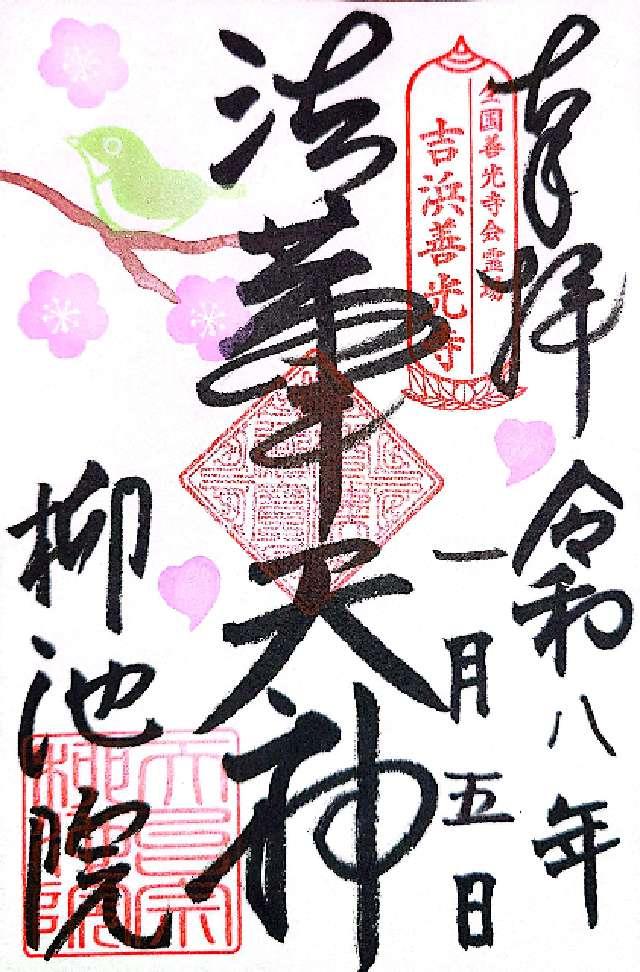 奉拝
令和八年
一月五日
全国善光寺会霊場
吉浜善光寺
法華天神
柳池院